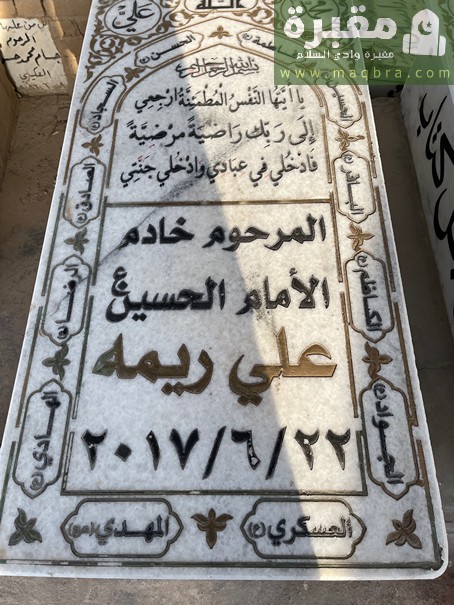 مقبرة
مقبرة وادي السلام
www.maqbra.com
الله
علي
فاطمة
الحسن
الحسين
السجاد
بسم الله الرحمن الرحيم
يا أيتها النفس المطمئنة ارجعي
إلى ربك راضية مرضية
فادخلي في عبادي وادخلي جنتي
الباقر (ع)
الصادق (ع)
المرحوم خادم
الأمام الحسين ع
علي ريمه
٢٠١٧/٦/٢٢
الكاظم (ع)
الرضا (ع)
الجواد (ع)
الهادي (ع)
العسكري (ع)
المهدي (عج)
المرحوم